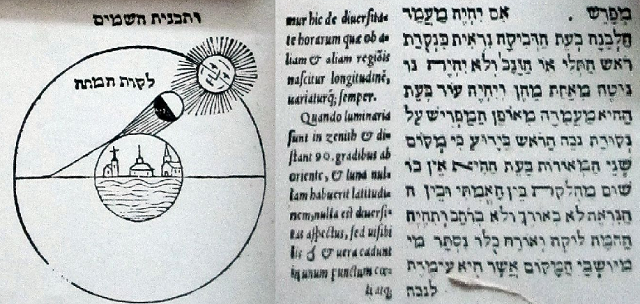 ותבנית השמים
לקות החמה
mur hic de diuersita=
te horarum quæ ob a-
liam & aliam regiõis
nascitur longitudinẽ,
uariaturq; semper.
Quando luminaria
sunt in zenith & di=
stant 90. gradibus ab
oriente, & luna nul=
lam habuerit latitudi=
nem, nulla est diuersi=
tas aspectus, sed uisibi
lis ☌ & uera cadunt
in unum punctum cœ=
li atq;
מפרש . אם יהיה מעמד
הלבנה בעת הדביקה נראית בנקודת
ראש התלי או הזנב ולא יהיה נו
נוטה מאחת מהן ויהיה עוד בעת
ההיא מעמדה מאופן המפריש על
נקודת גבה הראש בידוע כי מקום
שני המאורות בעת ההיא אין בו
שום מחלקות בין האמתי ובין ה
הנראה לא באורך ולא ברחב ותהיה
החמה לוקה ואורה כלו נסתר מי
מיושבי המקום אשר היא עומדת
לגבה